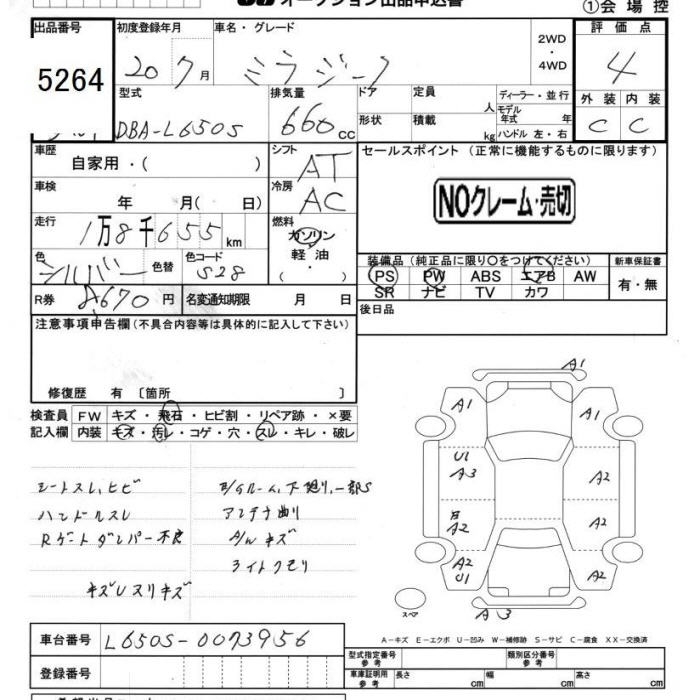 オークション出品申込書
①会場控
出品番号 5264
初度登録年月 20 7月
車名・グレード ミラジーノ
2WD・4WD
評価点 4
型式 DBA-L650S
排気量 660 cc
ドア 定員 人 ディーラー・並行
形状 積載 kg モデル年式 年 ハンドル 左・右
外装 内装
C C
車歴 自家用・( )
シフト AT
セールスポイント (正常に機能するものに限ります)
車検 年 月( 日)
冷房 AC
NOクレーム・売切
走行 1万8千655km
燃料 ガソリン 軽油 (・)
色 シルバー 色替 色コード S28
装備品(純正品に限り○をつけてください) 新車保証書
PS PW ABS エアB AW 有・無
SR ナビ TV カワ
R券 8670円 名変通知期限 月 日
後日品
注意事項申告欄(不具合内容等は具体的に記入して下さい)
修復歴 有 〔箇所
検査員 FW キズ・飛石・ヒビ割・リペア跡・×要
記入欄 内装 キズ・汚レ・コゲ・穴・スレ・キレ・破レ
A1
A1 A1
U1
A3 A2
A2 A2
A2
U1 A2
A3
スペア
シートスレ,ヒビ
ハンドルスレ アンテナ曲り
Rゲートダンパー不良 キズ
ライトクモリ
キズUスリキズ
A－キズ E－エクボ U－凹み W－補修跡 S－サビ C－腐食 XX－交換済
車台番号 L650S-0073956
型式指定番号 参考 類別区分番号 参考
登録番号
車庫証明用 参考 長さ cm 幅 cm 高さ cm